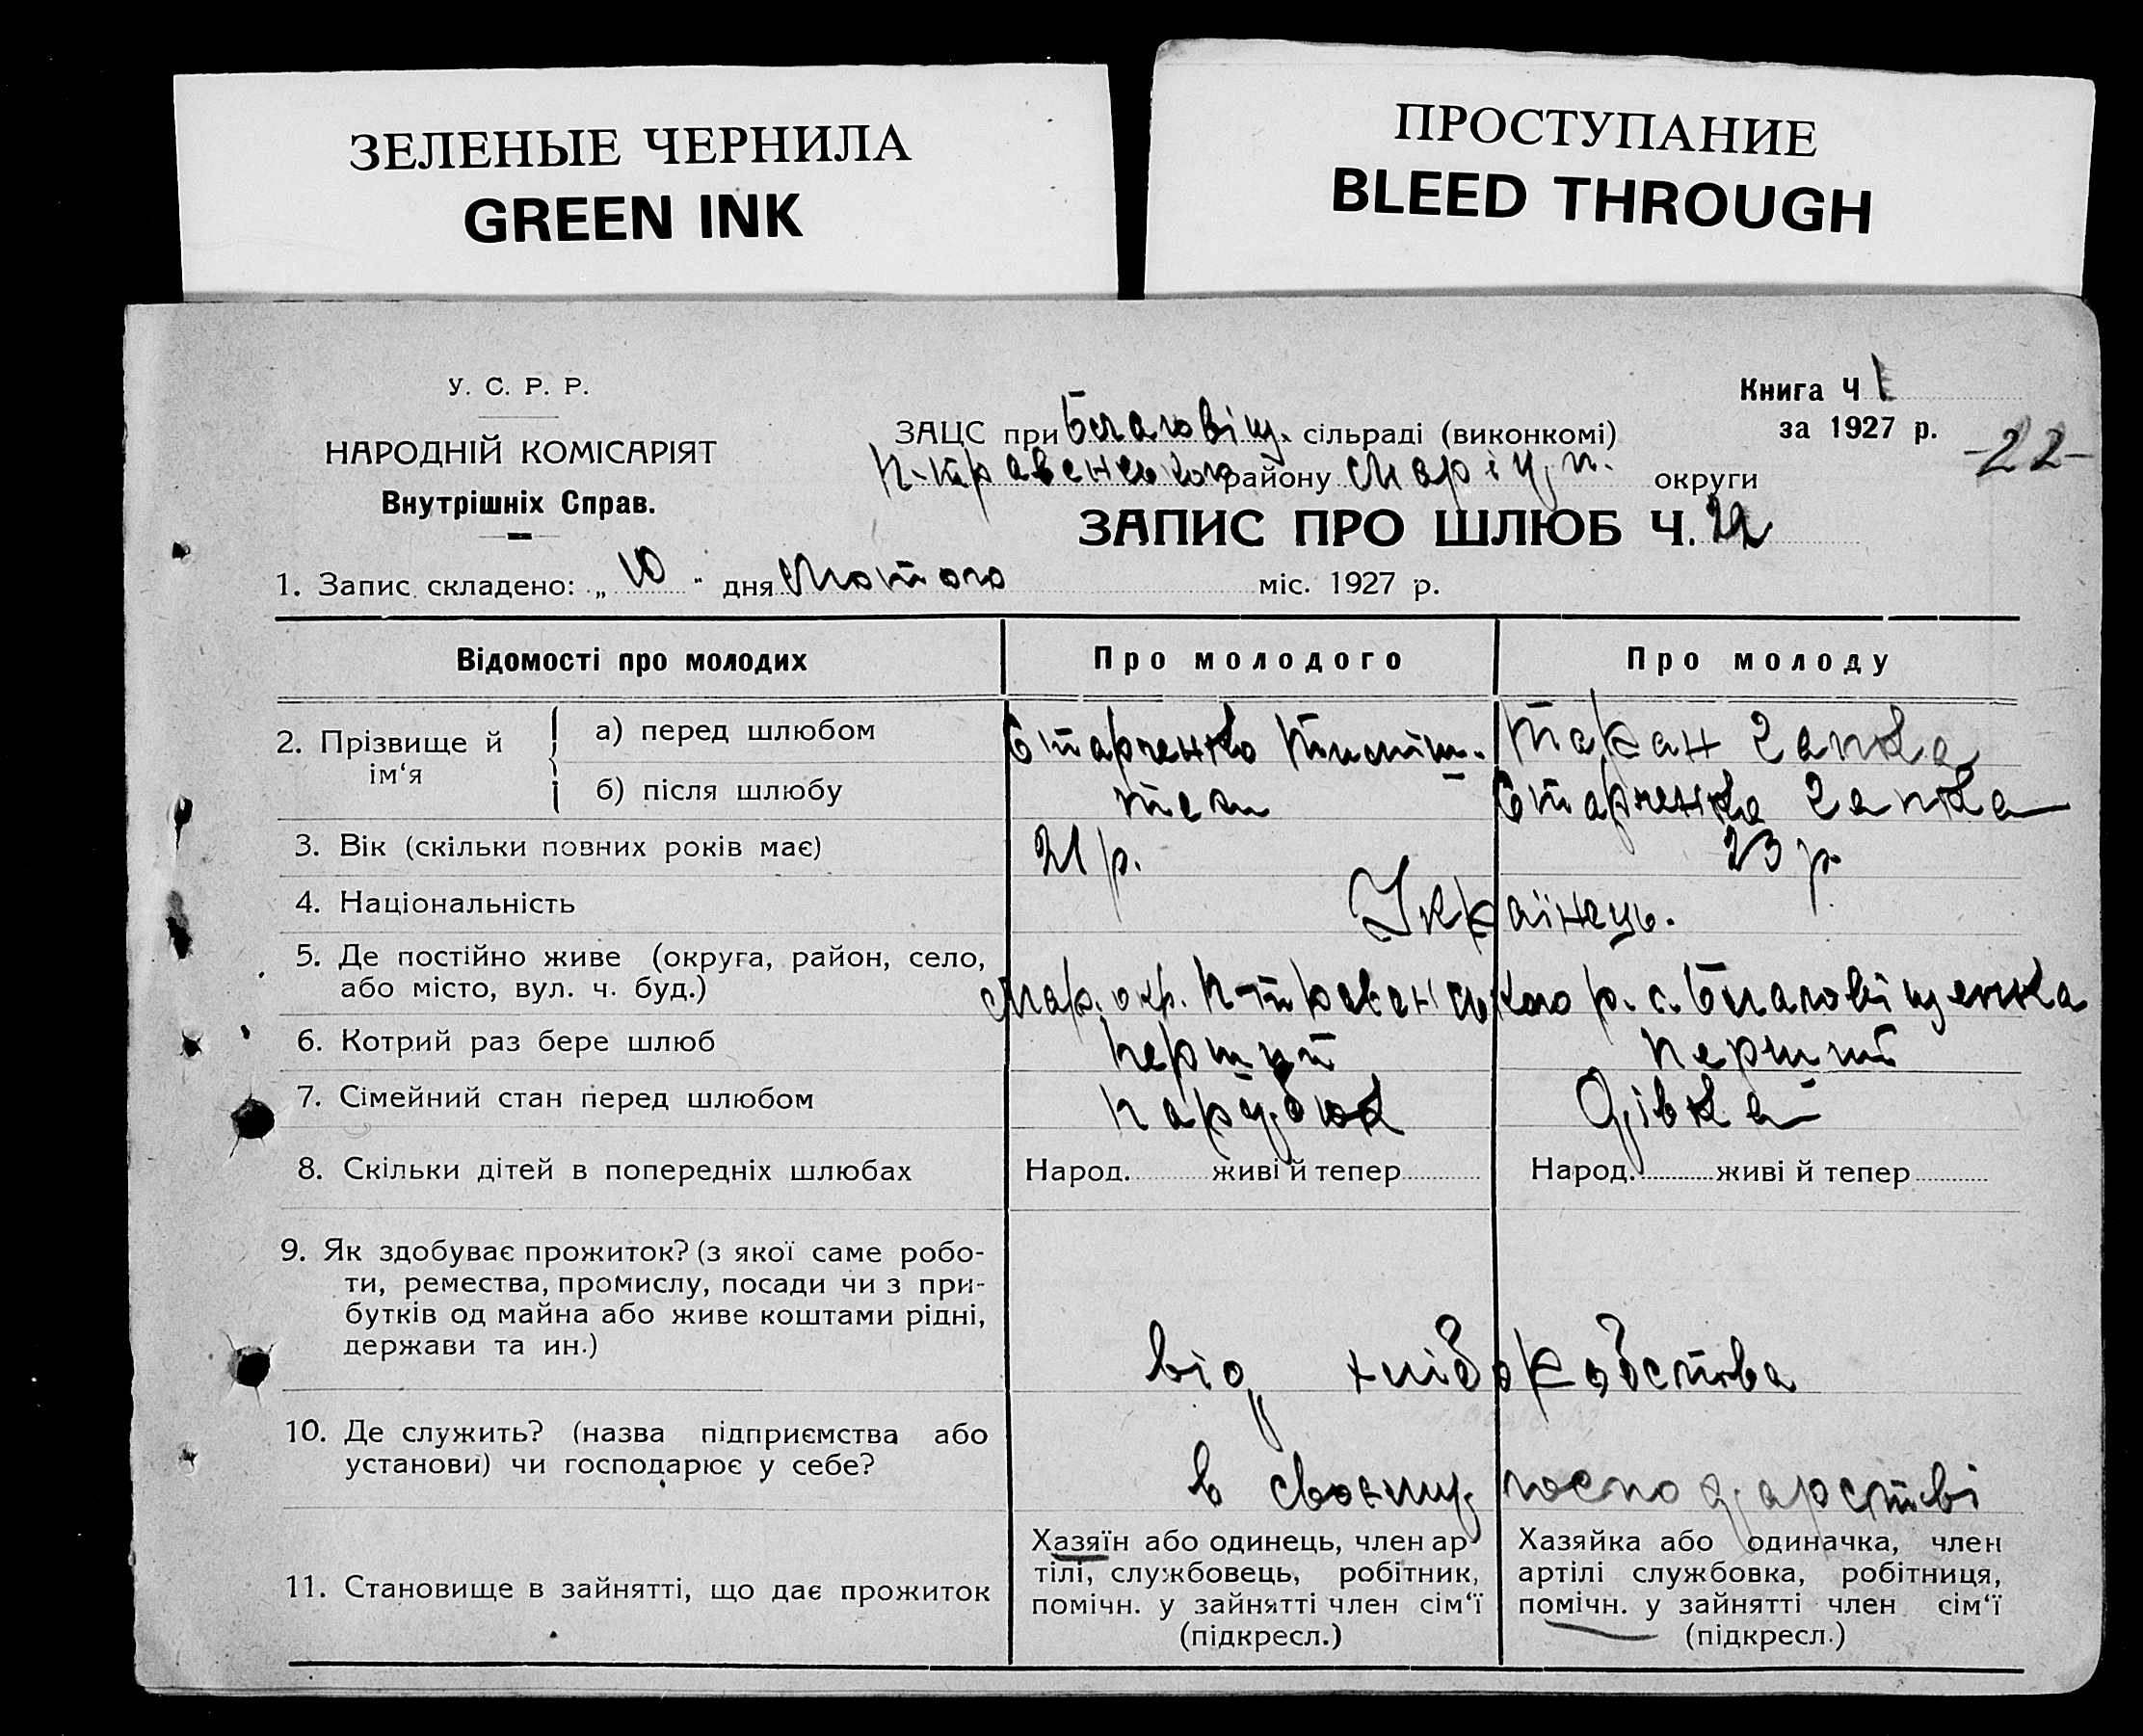 ЗЕЛЕНЫЕ ЧЕРНИЛА
GREEN INK
ПРОСТУПАНИЕ
BLEED THROUGH
У. С. Р. Р.
НАРОДНІЙ КОМІСАРІЯТ
Внутрішніх Справ.
Книга Ч 1
за 1927 р.
-22-
ЗАЦС при Благовіщ. сільраді (виконкомі)
району Маріуп. округи
ЗАПИС ПРО ШЛЮБ Ч. 22
1. Запис складено: „ 10 " дня Лютого міс. 1927 р.
Відомості про молодих Про молодого Про молоду
2. Прізвище й ім‘я
а) перед шлюбом Старченко Таран Гапка
б) після шлюбу Старченко Гапка
3. Вік (скільки повних років має) 21 р. 23 р.
4. Національність Українець.
5. Де постійно живе (округа, район, село,
або місто, вул. ч. буд.) Мар. окр. р. с. Благовіщенка
6. Котрий раз бере шлюб перший перший
7. Сімейний стан перед шлюбом парубок Дівка
8. Скільки дітей в попередніх шлюбах Народ. живі й тепер Народ. живі й тепер
9. Як здобуває прожиток? (з якої саме робо-
ти, ремества, промислу, посади чи з при-
бутків од майна або живе коштами рідні,
держави та ин.) від хліборобства
10. Де служить? (назва підприємства або
установи) чи господарює у себе? в своєму господарстві
11. Становище в зайнятті, що дає прожиток
Хазяїн або одинець, член ар
тілі, службовець, робітник,
помічн. у зайнятті член сім‘ї
(підкресл.)
Хазяйка або одиначка, член
артілі службовка, робітниця,
помічн. у зайнятті член сім‘ї
(підкресл.)